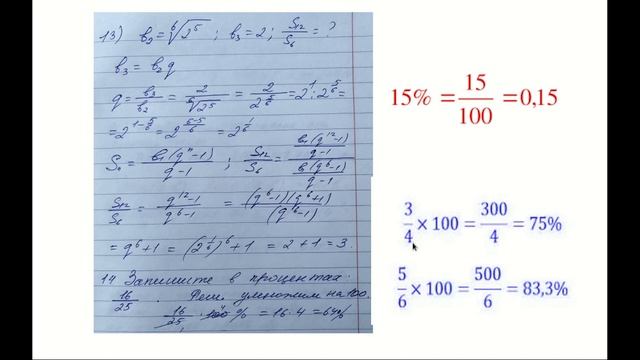 13) b₂ = ⁶√2⁵ ; b₃ = 2 ; S₁₂/S₆ = ?
b₃ = b₂q
q = b₃/b₂ = 2/⁶√2⁵ = 2/2^(5/6) = 2¹ : 2^(5/6) =
= 2^(1-5/6) = 2^((6-5)/6) = 2^(1/6)
Sₙ = b₁(qⁿ-1)/(q-1) ; S₁₂/S₆ = (b₁(q¹²-1)/(q-1))/(b₁(q⁶-1)/(q-1))
S₁₂/S₆ = (q¹²-1)/(q⁶-1) = (q⁶-1)(q⁶+1)/(q⁶-1)
= q⁶+1 = (2^(1/6))⁶+1 = 2+1 = 3.
14 Запишите в процентах:
16/25 . Реш. умножим на 100.
16/25 · 100 % = 16·4 = 64%
15% = 15/100 = 0,15
3/4 × 100 = 300/4 = 75%
5/6 × 100 = 500/6 = 83,3%